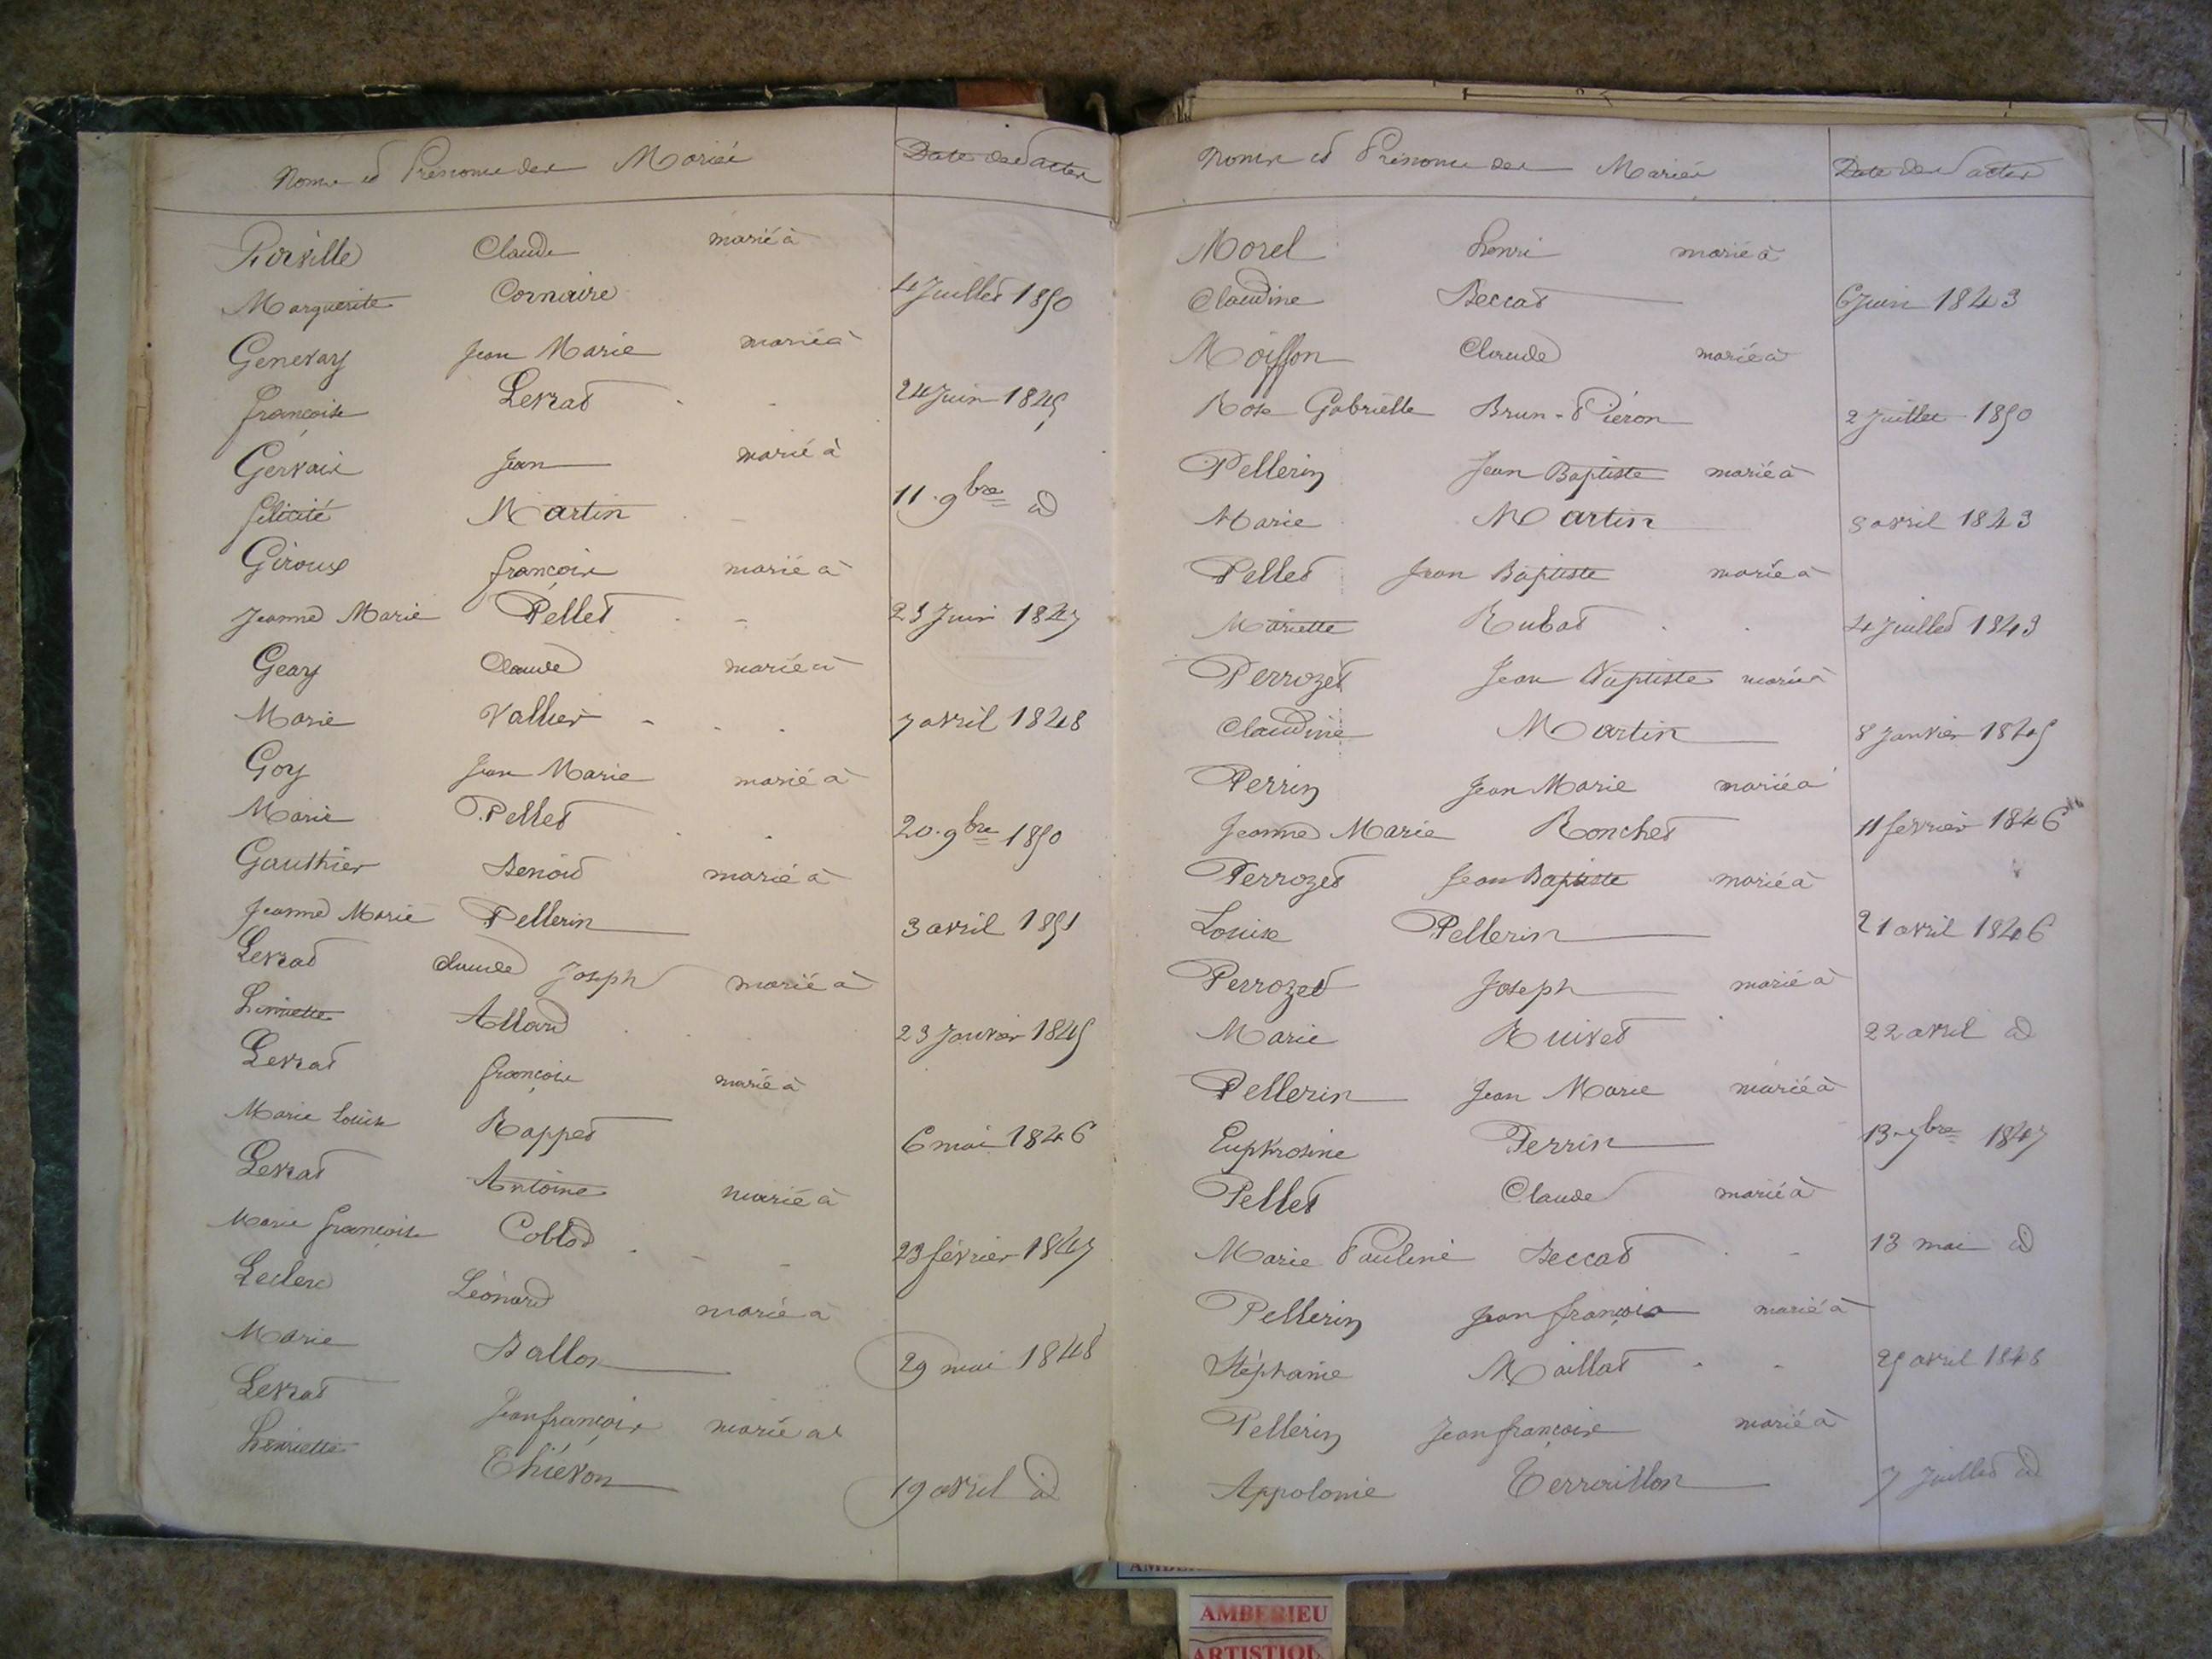 Noms et Prénoms des Mariés Date des actes
Claude marié à
Marguerite Cornaire 4 Juillet 1850
Genevay Jean Marie marié à
françoise Levrat 24 Juin 1845
Gervais Jean marié à
félicité Martin 11 9bre id
Giroux françois marié à
Jeanne Marie Pellet 23 Juin 1847
Geay Claude marié à
Marie Vallier 7 avril 1848
Goy Jean Marie marié à
Marie Pellet 20 9bre 1850
Gauthier Benoit marié à
Jeanne Marie Pellerin 3 avril 1851
Levrat Claude Joseph marié à
henriette Allard 23 Janvier 1845
Levrat françois marié à
Marie Louise Rappet 6 mai 1846
Levrat Antoine marié à
Marie françoise 23 février 1847
Leclerc Léonard marié à
Marie Ballon 29 mai 1848
Levrat Jean françois marié à
henriette Thiévon 19 avril id
Noms et Prénoms des Mariés Date des actes
Morel henri marié à
Claudine Beccat 6 Juin 1843
Moiffon Claude marié à
Rose Gabrielle Brun-Piéron 2 Juillet 1850
Pellerin Jean Baptiste marié à
Marie Martin avril 1843
Pellet Jean Baptiste marié à
Mariette Rubat 4 Juillet 1843
Perrozet Jean Baptiste marié à
Claudine Martin 8 Janvier 1845
Perrin Jean Marie marié à
Jeanne Marie Ronchet 11 février 1846
Perrozet Jean Baptiste marié à
Louise Pellerin 21 avril 1846
Perrozet Joseph marié à
Marie Ruivet 22 avril id
Pellerin Jean Marie marié à
Euphrosine Perrin 13 7bre 1847
Pellet Claude marié à
Marie Pauline Beccat 13 mai id
Pellerin Jean françois marié à
Stéphanie Maillat 25 avril 1848
Pellerin Jean françois marié à
Appolonie Terraillon 7 Juillet id
AMBERIEU
ARTISTIQU